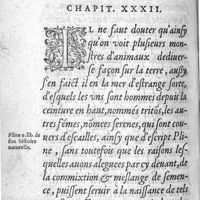 CHAPIT. XXXII.
IL ne faut douter qu'ainsy
qu'on voit plusieurs mon
stres d'animaux de diuer-
se façon sur la terre, aussy
s'en faict il en la mer d'estrange sorte,
d'esquels les vns sont hommes depuis la
ceinture en hault, nommés tritõs, les au-
tres fémes, nómees serenes, qui sont cou-
uers d'escalles, ainsy que d'escript Pline
Pline 9. lib. de
son histoire
naturelle.
, sans toutefois que les raisons les-
quelles auons aleguees par cy deuant, de
la commixtion & meslange de semen-
ce, puissent seruir à la naissance de tels